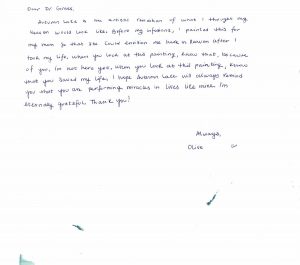 Dear Dr. Grass,
Autumn Lake is the artistic rendition of what I thought my
Heaven would look like. Before my infusions, I painted this for
my mom so that she could envision me there in Heaven after I
took my life. When you look at this painting, know that, because
of you, I'm not here yet. When you look at this painting, know
that you saved my life. I hope Autumn Lake will always remind
you that you are performing miracles in lives like mine. I'm
eternally grateful. Thank you!
Always,
Olive